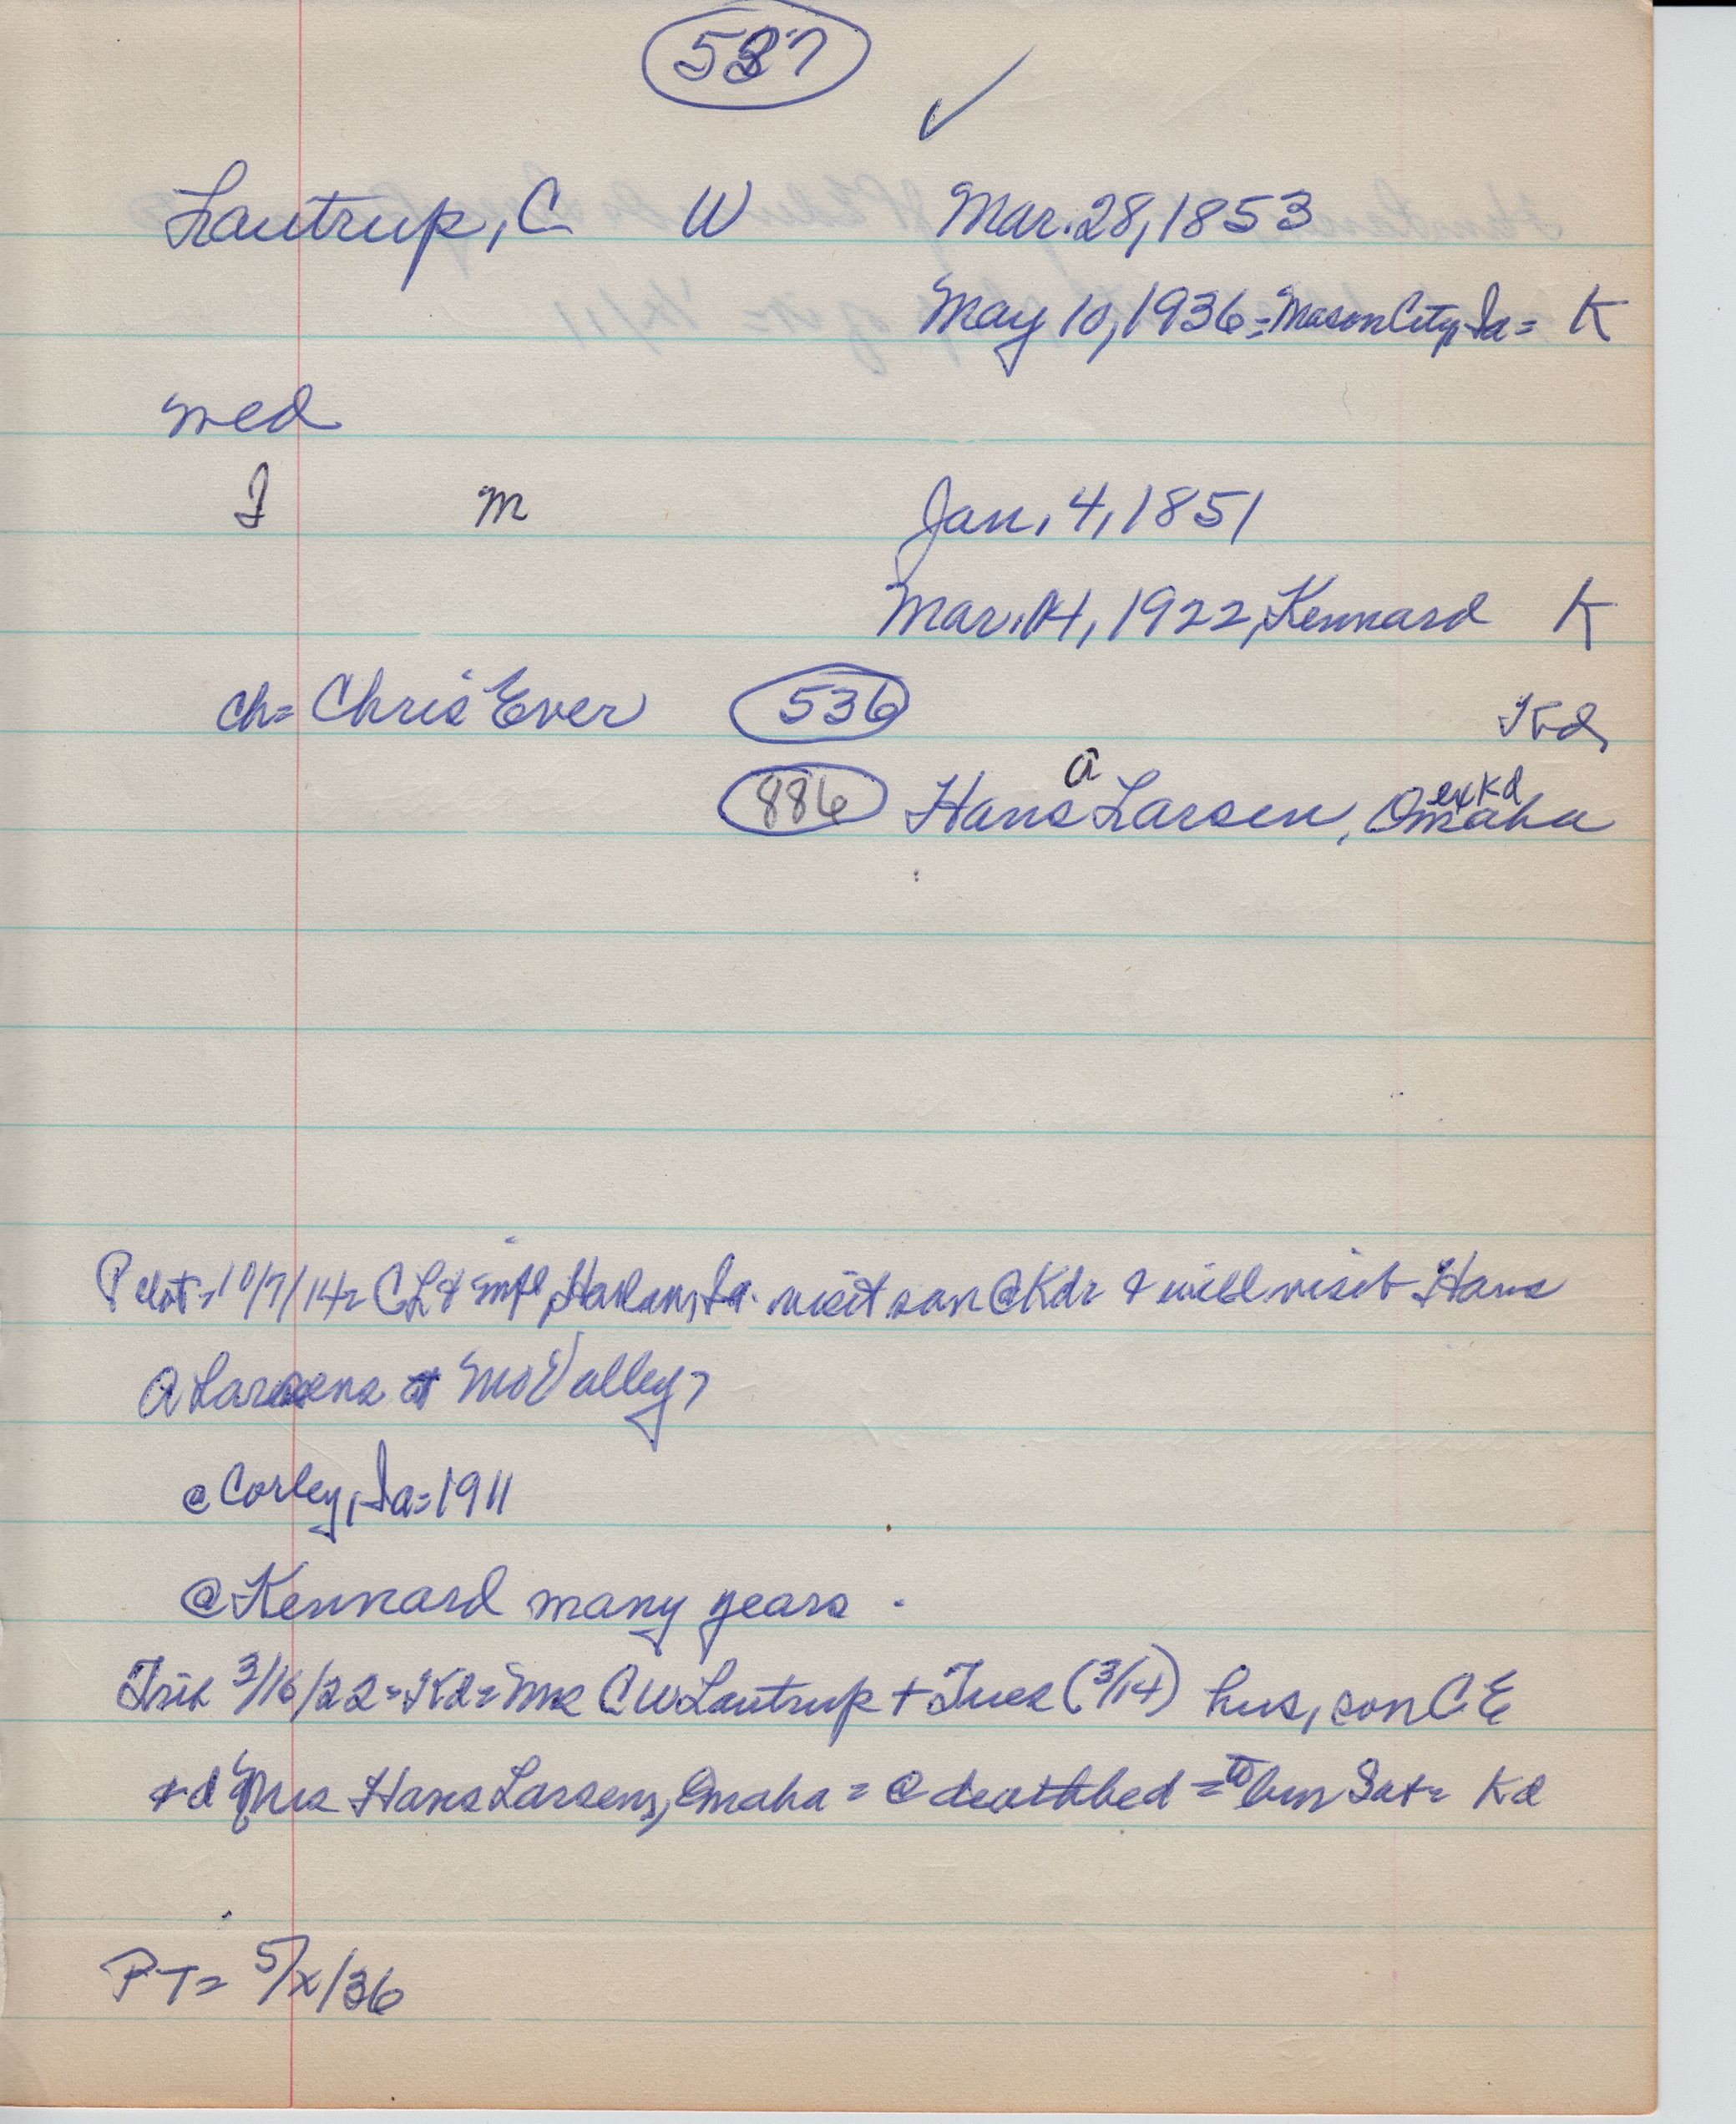 537
✓
Lautrup, C W Mar. 28, 1853
May 10, 1936 = Mason City, Ia = K
med
I M Jan, 4, 1851
Mar. 14, 1922, Kennard K
ch = Chris Ever 536 Kd,
886 Hans A Larsen, Omaha ex Kd
Pilot = 10/7/14 = CL & Harlan, Ia. visit son @ Kd & will visit Hans
A Larsens at Mo Valley,
@ Corley, Ia = 1911
@ Kennard many years .
Trib 3/16/22 = Kd = Mrs C W Lautrup + Tues (3/14) hus, son C E
+ d Mrs Hans Larsen, Omaha = @ deathbed = to bur Sat = Kd
PT = 5/x/36